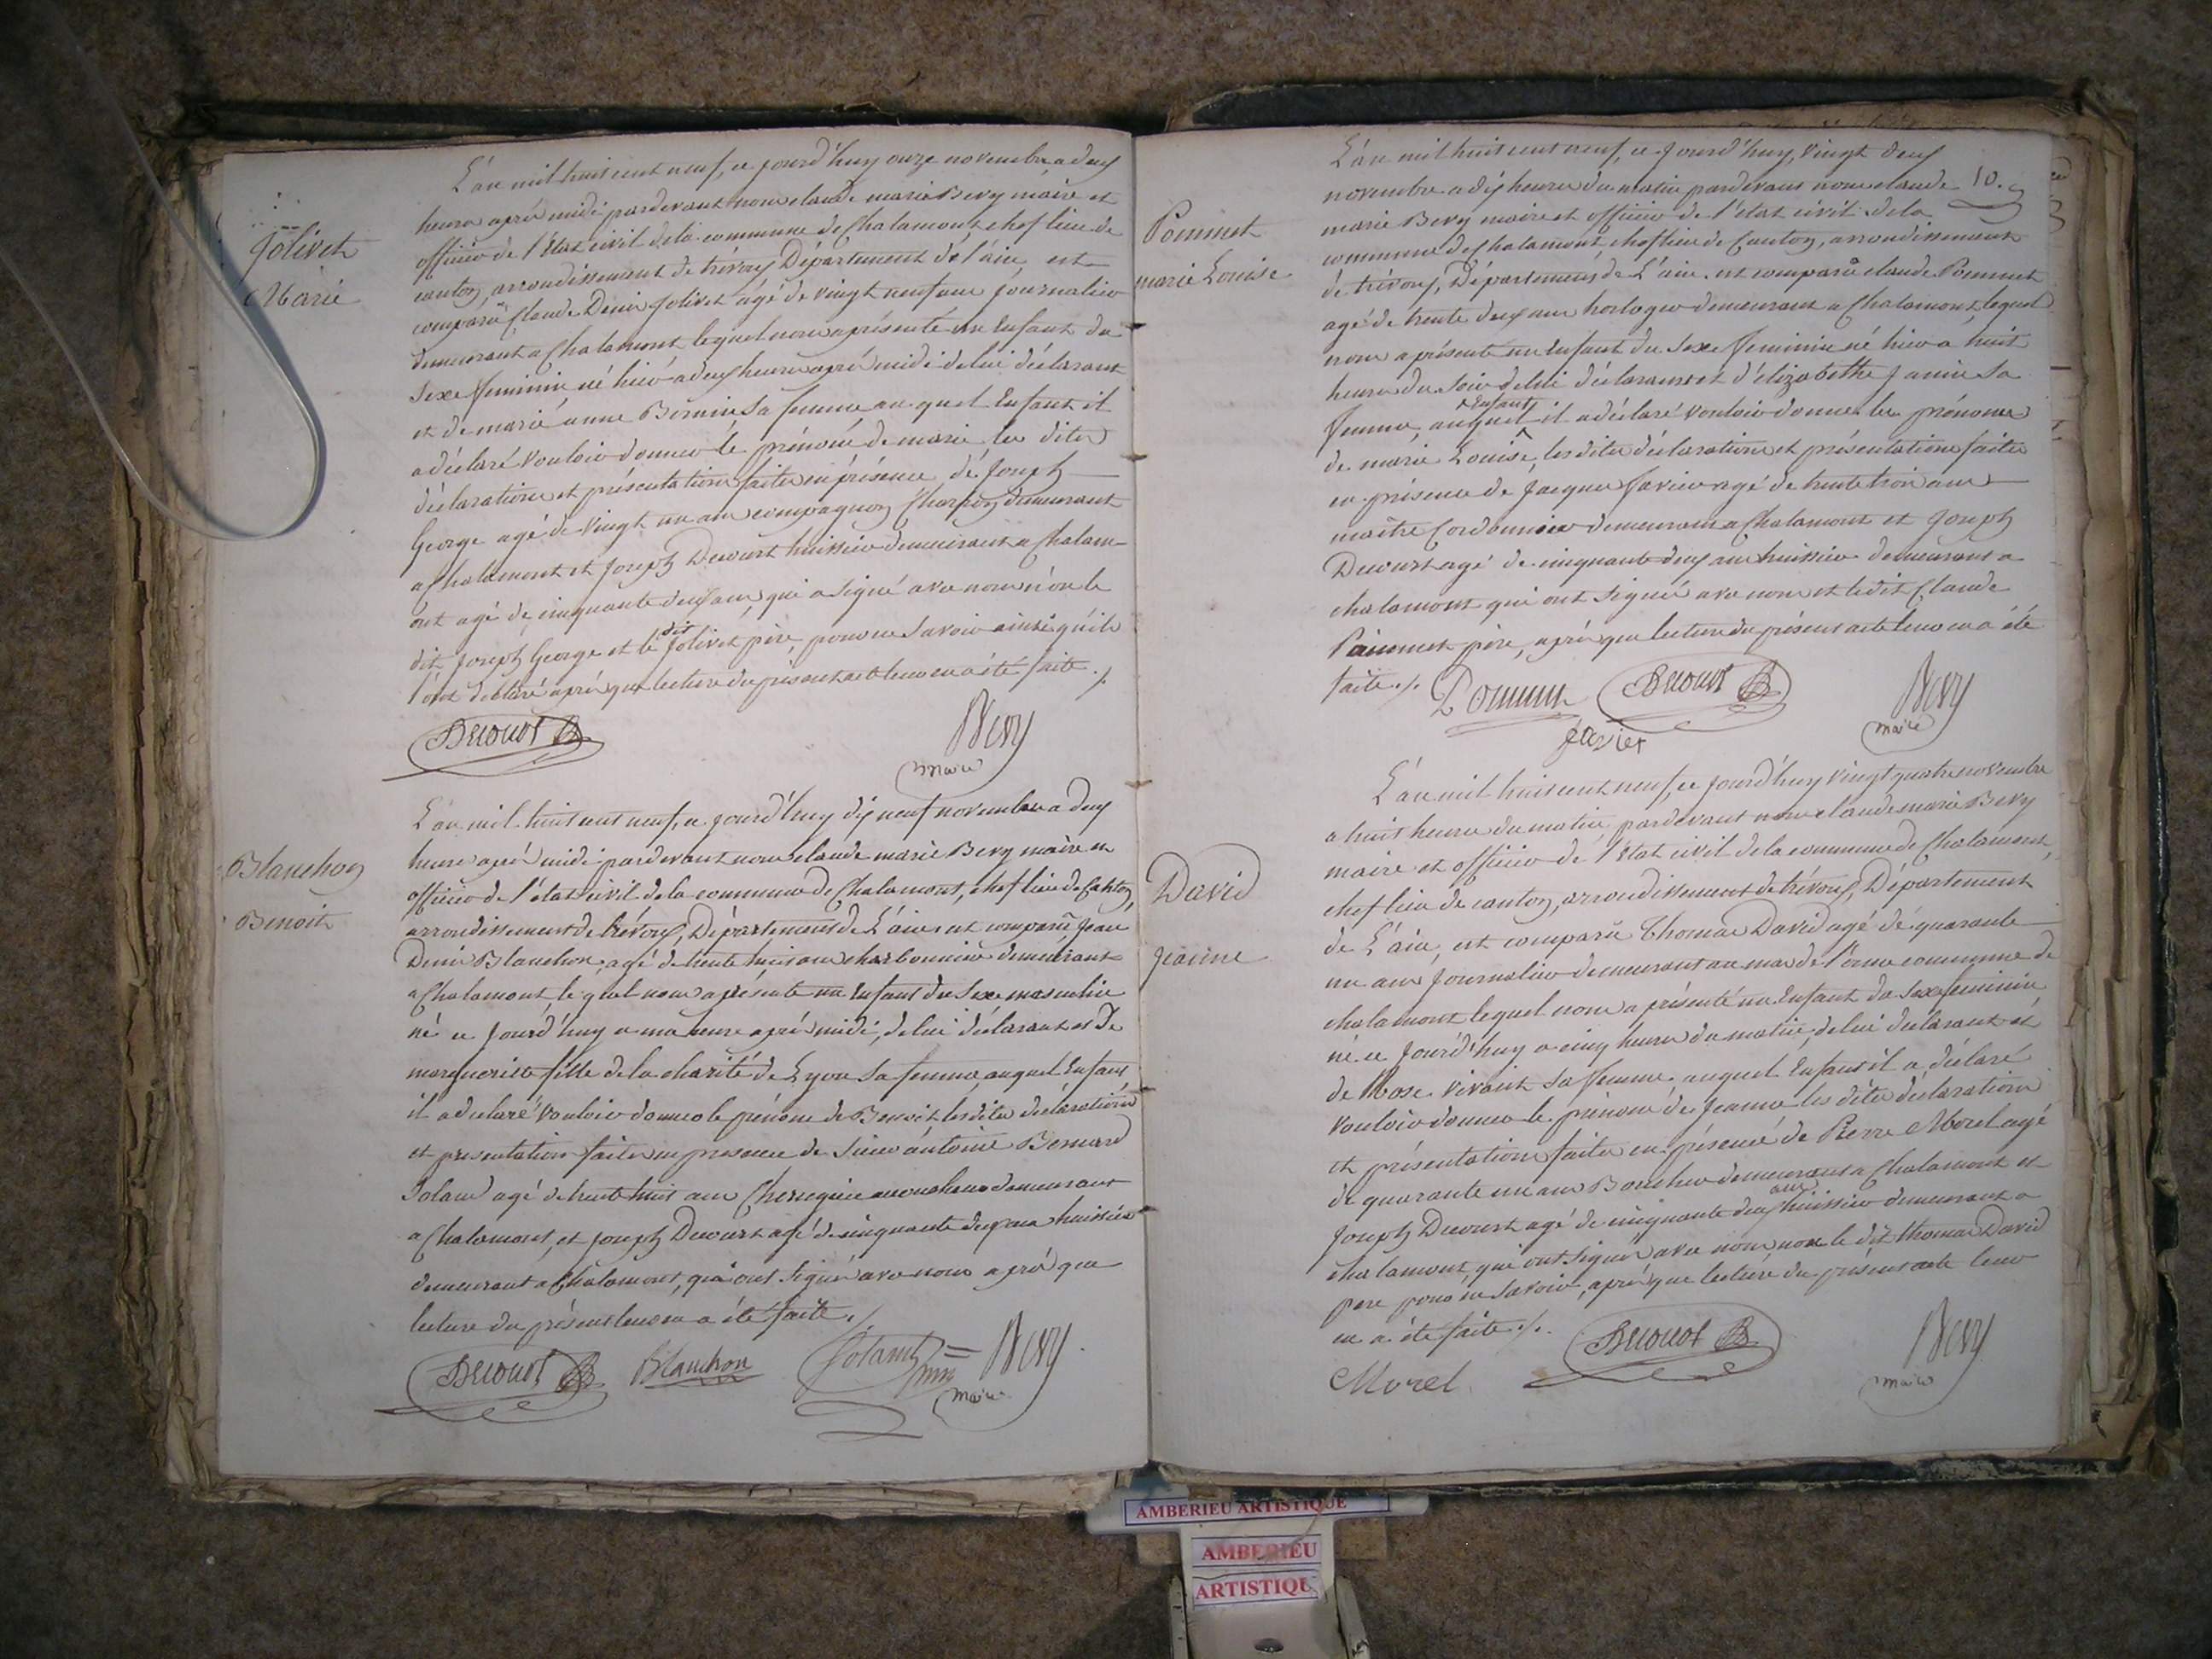 Jolivet
Marie
L'an mil huit cent neuf, ce jourd'huy onze novembre a deux
heures aprés midi pardevant nous claude marie Bevy maire et
officier de l'état civil de la commune de Chalamont, chef lieu de
canton, arrondissement de trevoux Département de l'ain, est
comparû Claude Denis Jolivet agé de vingt neuf ans journalier
demeurant a Chalamont lequel nous a présenté un Enfant du
Sexe feminin, né hiér a deux heures aprés midi de lui déclarant
et de marie anne Bernin Sa femme, au quel Enfant il
a déclaré Vouloir donner le prénom de marie les dites
déclaration et présentation faites en présence de Joseph
George agé de vingt un ans compagnon Charpon demeurant
a Chalamont et Joseph Decourt huissier demeurant a Chalam-
ont agé de cinquante deux ans, qui a signé avec nous n'on le
dit Joseph George et le dit Jolivet pére, pour ne Savoir ainsi qu'ils
l'ont déclaré aprés que lecture du présent acte leur en a été faite ./.
Decourt Bevy
maire
Blanchon
Benoit
L'an mil huit cent neuf, ce jourd'huy dix neuf novembre a deux
heures aprés midi pardevant nous claude marie Bevy maire et
officier de l'état civil de la commune de Chalamont, chef lieu de Canton,
arrondissement de trévoux, Département de L'ain est comparû Jean
Denis Blanchon, agé de trente huit ans charbonnier demeurant
a Chalamont, le quel nous a présenté un Enfant du Sexe masculin
né ce jourd'huy a une heure aprés midi, de lui déclarant et de
marguerite fille de la charité de Lyon Sa femme, auquel Enfant
il a déclaré Vouloir donner le prénom de Benoit, les dites déclaration
et presentation faites en presence de Sieur antoine Bernard
Joland agé de trente huit ans demeurant
a Chalamont, et Joseph Decourt agé de cinquante deux ans huissier
demeurant a Chalamont, qui ont signé avec nous aprés que
lecture du présent leur en a été faite ./.
Decourt Blanchon Joland Bevy
maire
10.
Pommet
marie Louise
L'an mil huit cent neuf, ce jourd'huy, vingt deux
novembre a dix heures du matin pardevant nous claude
marie Bevy maire et officier de l'état civil de la
commune de Chalamont, chef lieu de Canton, arrondissement
de trévoux, Département de L'ain, est comparû claude Pommet
agé de trente deux ans horloger demeurant a Chalamont lequel
nous a présenté un Enfant du Sexe feminin né hier a huit
heures du Soir de lui déclarant et d'elizabethe Janin Sa
femme, auquel Enfant il a déclaré Vouloir donner les prénoms
de marie Louise, les dites déclaration et présentation faites
en présence de Jacques Favier agé de trente trois ans
maître Cordonnier demeurant a Chalamont et Joseph
Decourt agé de cinquante deux ans huissier demeurant a
chalamont qui ont signé avec nous et le dit Claude
Pommet pére, aprés que lecture du présent acte leur en a été
faite ./. Pommet Decourt Bevy
favier maire
David
Jeanne
L'an mil huit cent neuf, ce jourd'huy vingt quatre novembre
a huit heures du matin, pardevant nous claude marie Bevy
maire et officier de l'état civil de la commune de Chalamont,
chef lieu de canton, arrondissement de trévoux, Département
de L'ain, est comparû Thomas David agé de quarante
un ans Journalier demeurant au mas de l'orme commune de
chalamont lequel nous a présenté un Enfant du Sexe feminin,
né ce jourd'huy a cinq heures du matin, de lui déclarant et
de Rose Vivant Sa femme, auquel Enfant il a déclaré
Vouloir donner le prénom de Jeanne les dites déclaration
et présentation faites en présence de Pierre Morel agé
de quarante un ans Boucher demeurant a Chalamont et
Joseph Decourt agé de cinquante deux ans huissier demeurant a
chalamont, qui ont signé avec nous, non le dit thomas David
pere pour ne Savoir, aprés que lecture du présent acte leur
en a été faite ./.
Morel Decourt Bevy
maire
AMBERIEU ARTISTIQUE
AMBERIEU
ARTISTIQU